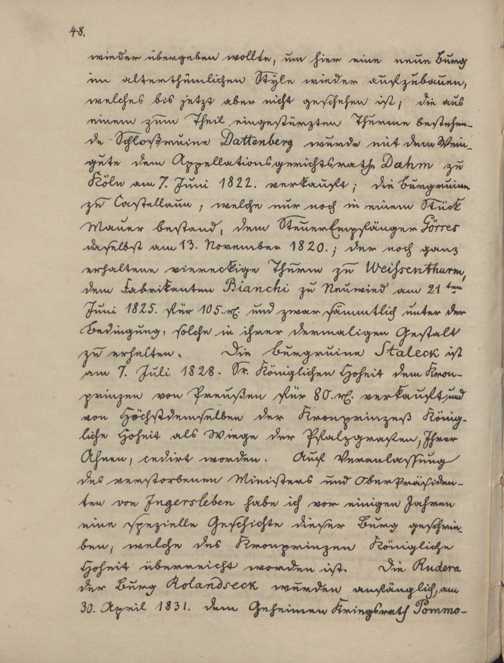 48.
wieder übergeben wollte, um hier eine neue Burg
im alterthümlichen Style wieder aufzubauen,
welches bis jetzt aber nicht geschehen ist; die aus
einem zum Theil eingestürzten Thurme bestehen-
de Schloßruine Dattenberg wurde mit dem Wein-
gute dem Appellationsgerichtsrathe Dahm zu
Köln am 7. Juni 1822. verkauft; die Burgruine
zu Castellaun, welche nur noch in einem Stück
Mauer bestand, dem Steuer Empfänger Görres
daselbst am 13. November 1820.; der noch ganz
erhaltene viereckige Thurm zu Weißenthurm,
dem Fabrikanten Bianchi zu Neuwied am 21ten
Juni 1825. für 105. und zwar sämmtlich unter der
Bedingung, solche in ihrer dermaligen Gestalt
zu erhalten. Die Burgruine Staleck ist
am 7. Juli 1828. Sr. Königlichen Hoheit dem Kron-
prinzen von Preußen für 80. verkauft, und
von Höchstdemselben der Kronprinzeß König-
liche Hoheit als Wiege der Pfalzgrafen, Ihrer
Ahnen, cedirt worden. Auf Veranlassung
des verstorbenen Ministers und Oberpräsiden-
ten von Ingersleben habe ich vor einigen Jahren
eine spezielle Geschichte dieser Burg geschrie-
ben, welche des Kronprinzen Königliche
Hoheit überreicht worden ist. Die Rudera
der Burg Rolandseck wurden anfänglich, am
30. April 1831. dem Geheimen Kriegsrath Pommo-